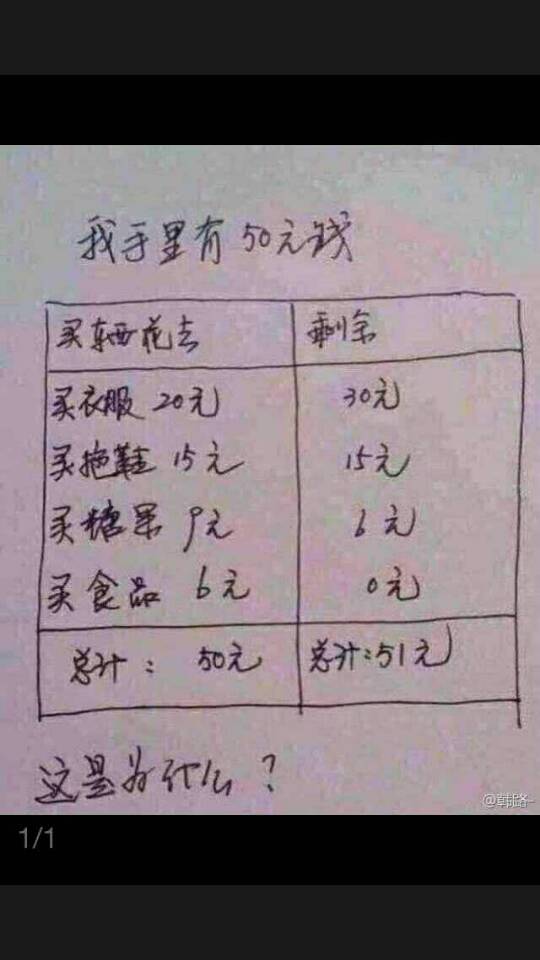 我手里有50元钱
买东西花去 剩余
买衣服 20元 30元
买拖鞋 15元 15元
买糖果 9元 6元
买食品 6元 0元
总计: 50元 总计:51元
这是为什么?
@韩路-
1/1